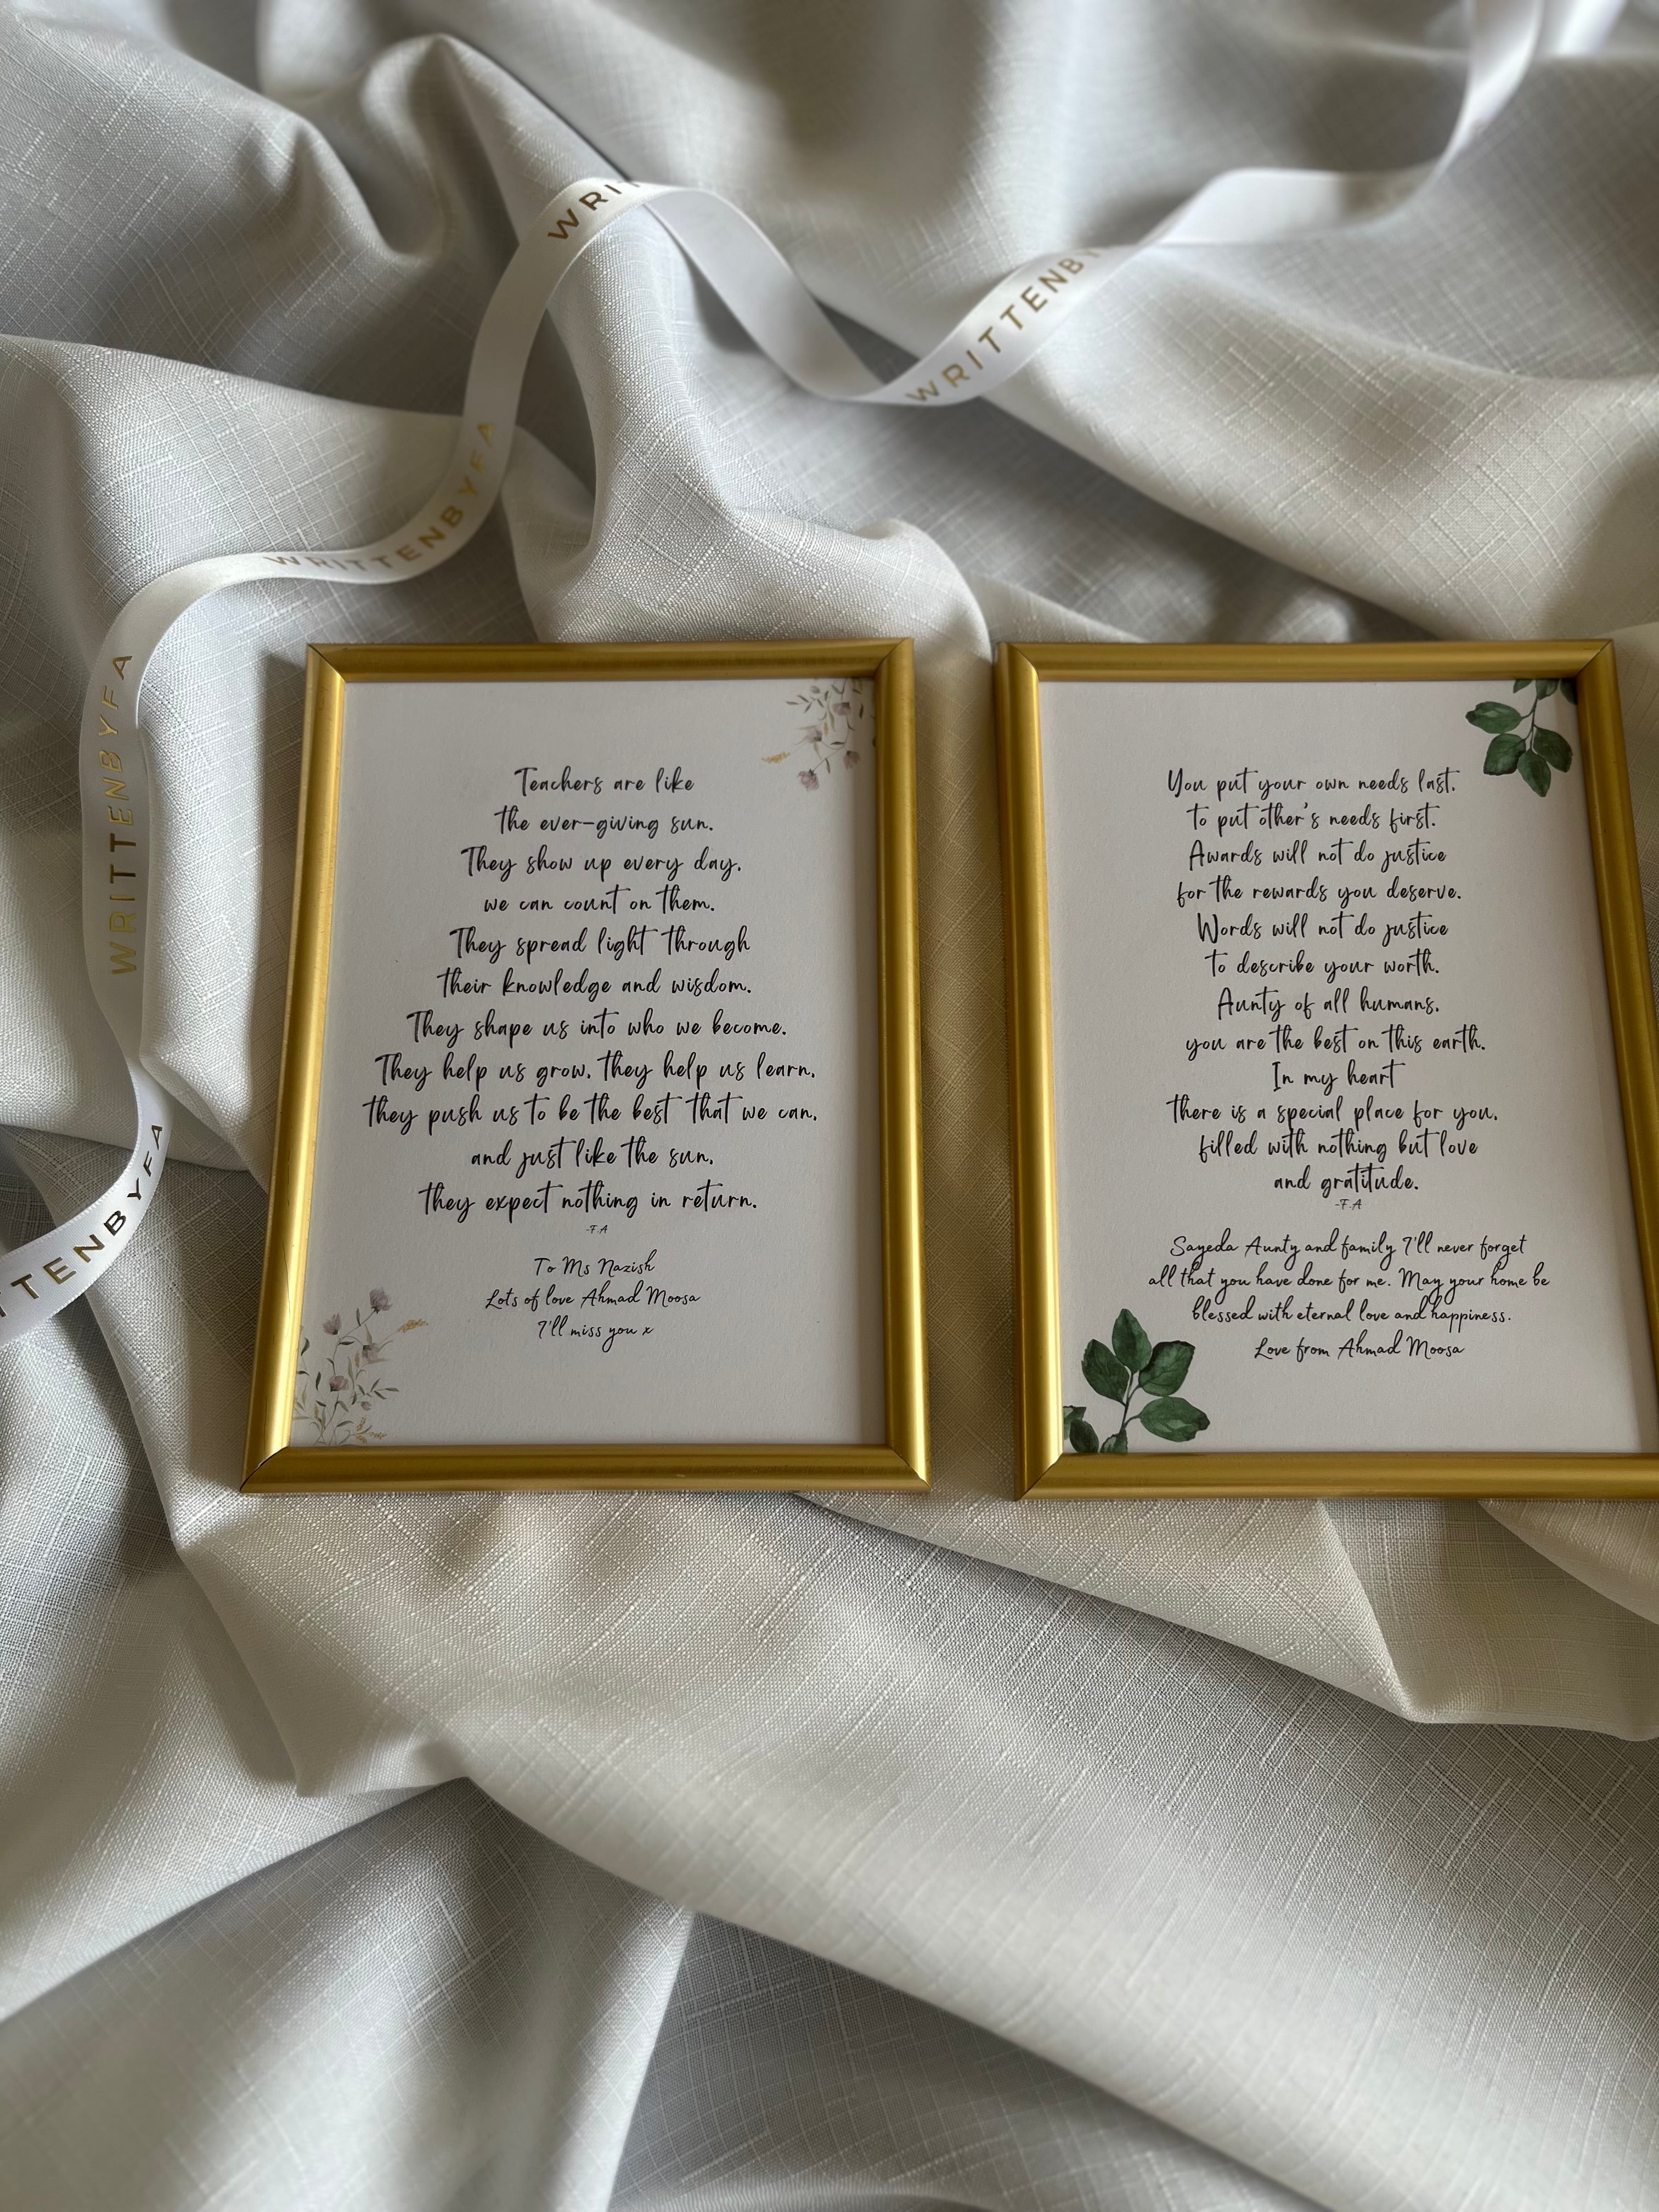 WRIT
WRITTENBY
WRITTENBYFA
WRITTENBYFA
TTENBYFA
Teachers are like
the ever-giving sun.
They show up every day,
we can count on them.
They spread light through
their knowledge and wisdom.
They shape us into who we become.
They help us grow, they help us learn,
they push us to be the best that we can,
and just like the sun,
they expect nothing in return.
-F.A
To Ms Nazish
Lots of love Ahmad Moosa
I'll miss you x
You put your own needs last,
to put other's needs first.
Awards will not do justice
for the rewards you deserve.
Words will not do justice
to describe your worth.
Aunty of all humans,
you are the best on this earth.
In my heart
there is a special place for you,
filled with nothing but love
and gratitude.
-F.A
Sayeda Aunty and family I'll never forget
all that you have done for me. May your home be
blessed with eternal love and happiness.
Love from Ahmad Moosa